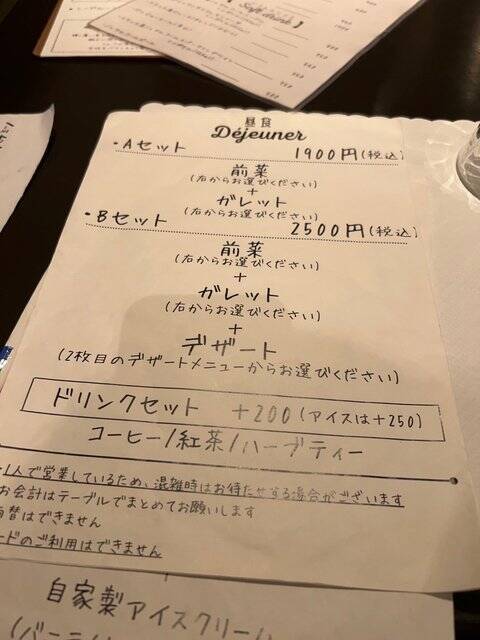 Soft drink】
昼食
Déjeuner
・Aセット 1900円(税込)
前菜
(右からお選びください)
+
ガレット
(右からお選びください)
・Bセット 2500円(税込)
前菜
(右からお選びください)
+
ガレット
(右からお選びください)
+
デザート
(2枚目のデザートメニューからお選びください)
ドリンクセット +200(アイスは+250)
コーヒー/紅茶/ハーブティー
1人で営業しているため、混雑時はお待たせする場合がございます
お会計はテーブルでまとめてお願いします
替はできません
ードのご利用はできません
自家製アイスクリー